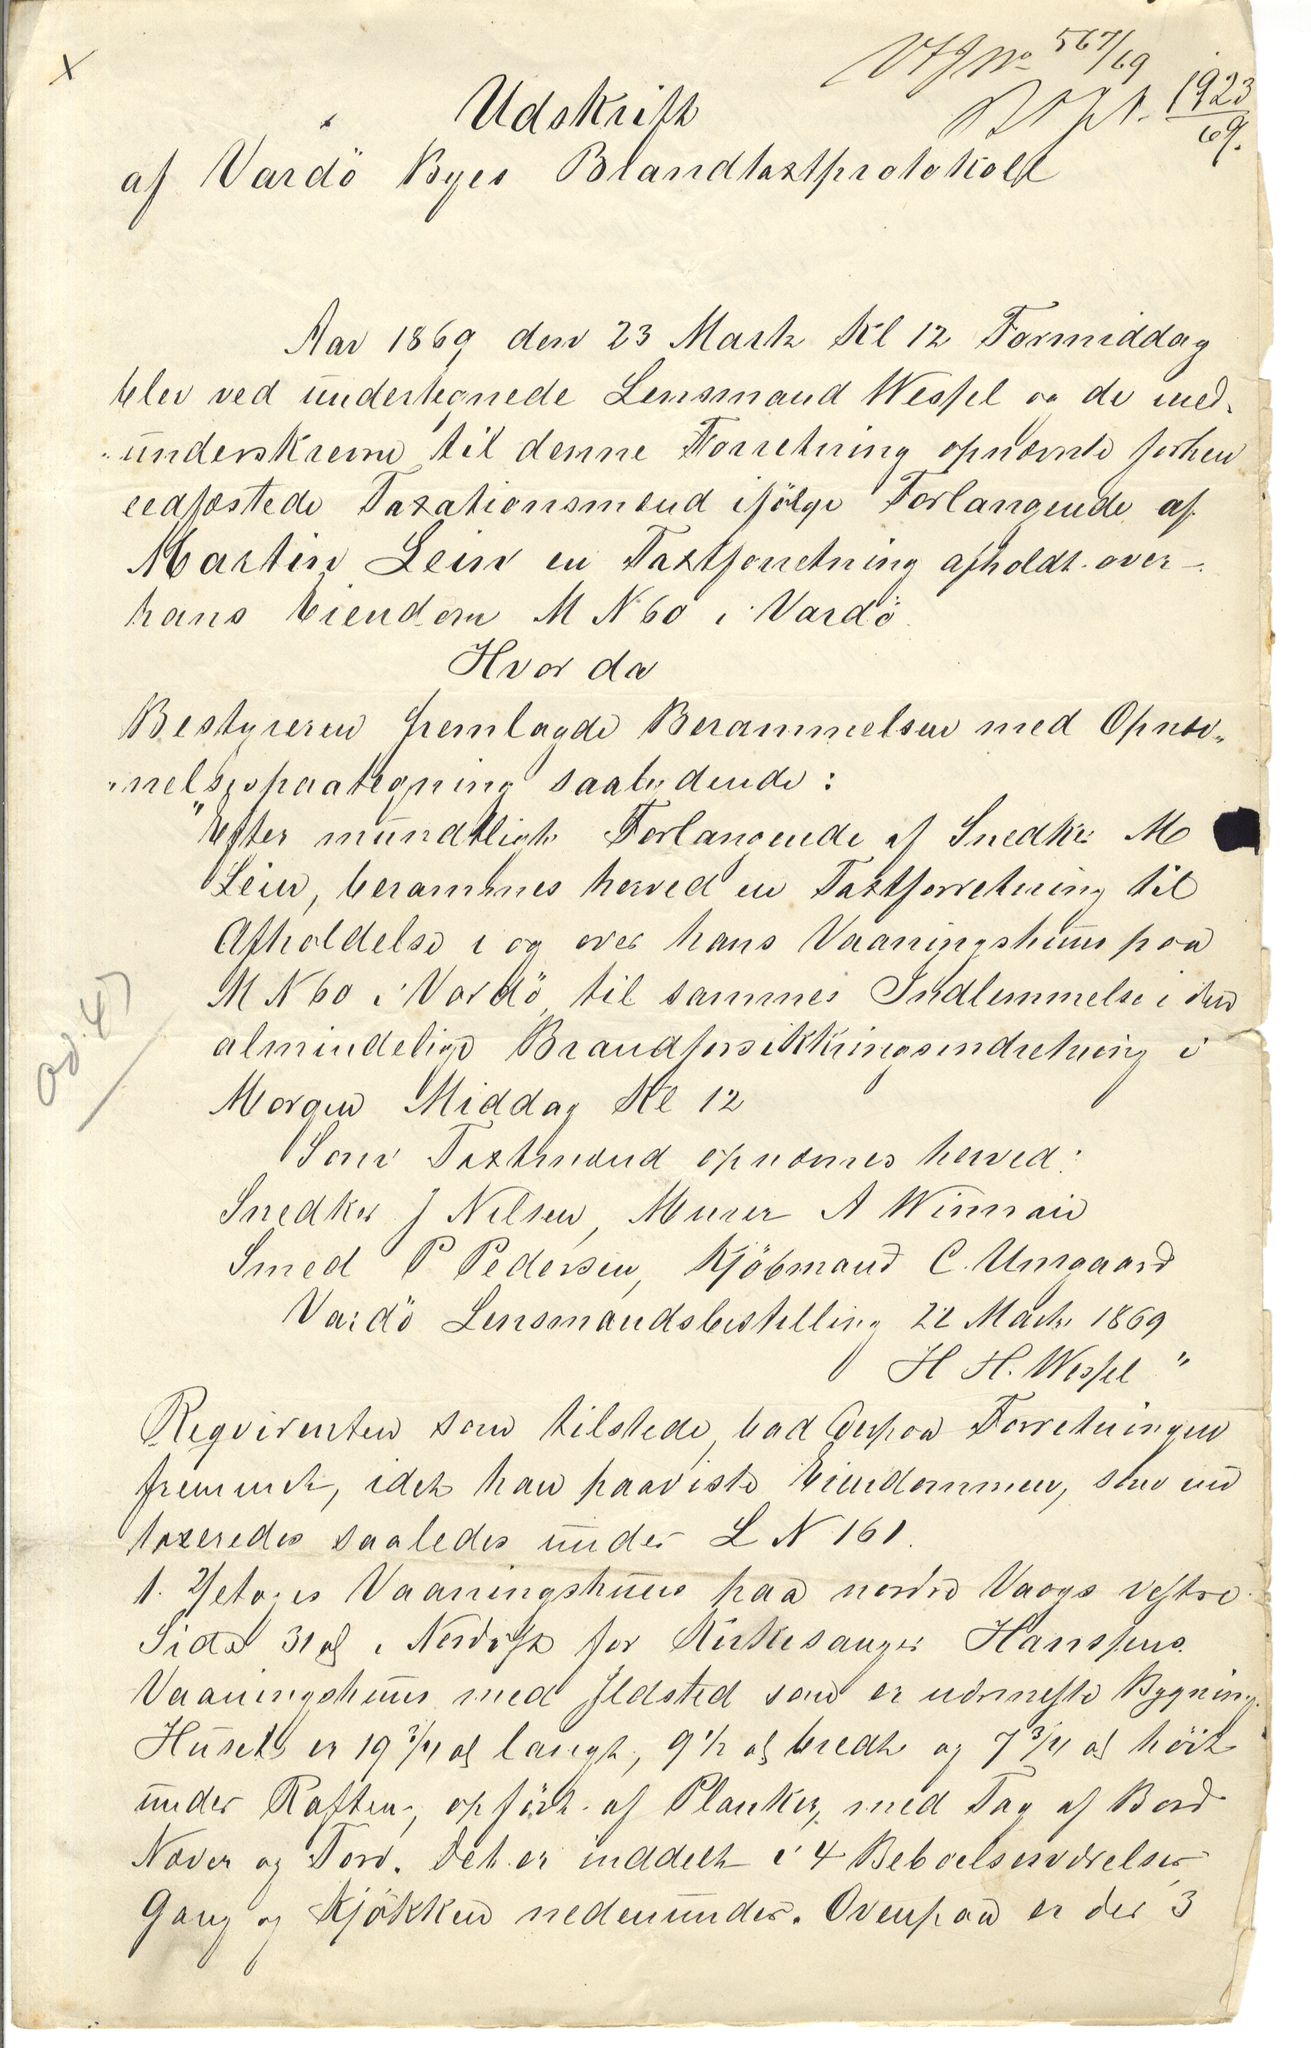 VFJNo 567/69
1923/69.
Udskrift
af Vardö Byes Brandtaxtprotokoll
Aar 1869 den 23 Marts Kl 12 Formiddag
blev ved undertegnede Lensmand Wessel og de med-
underskrevne til denne Forretning opnævnte forhen
eedfæstede Taxationsmænd ifölge Forlangende af
Martin Lein en Taxtforretning afholdt over
hans Eiendom M N 60 i Vardö.
Hvorda
Bestyreren fremlagde Berammelsen med Opnæv-
nelsespaategning saalydende:
"Efter mundtligt Forlangende af Snedker M
Lein, berammes herved en Taxtforretning til
Afholdelse i og over hans Vaaningshuus paa
M N 60 i Vardö til sammes Indlemmelse i den
almindelige Brandforsikkringsindretning i
Morgen Middag Kl 12
Som Taxtmænd opnævnes herved:
Snedker J Nilsen, Murer A Winnair
Smed P Pedersen, Kjöbmand C. Umgaard
Vardö Lensmandsbestilling 22 Marts 1869
H H. Wessel "
Reqvirenten som tilstede, bad Forretningen
fremmet, idet han paaviste Eiendommen, som nu
taxeredes saaledes under L N 161.
1. 2/etages Vaaningshuus paa nordre Vaags vestre
Side 31 al i Nordvest for Kirkesanger Hanssens
Vaaningshuus med Ildsted som er nærmeste Bygning.
Huset er 19 3/4 al langt, 9 1/2 al bredt og 7 3/4 al höit
under Raften, opfört af Planker, med Tag af Bord
Næver og Torv. Det er inddelt i 4 Beboelsesværelser
Gang og Kjökken nedenunder. Ovenpaa er der 3